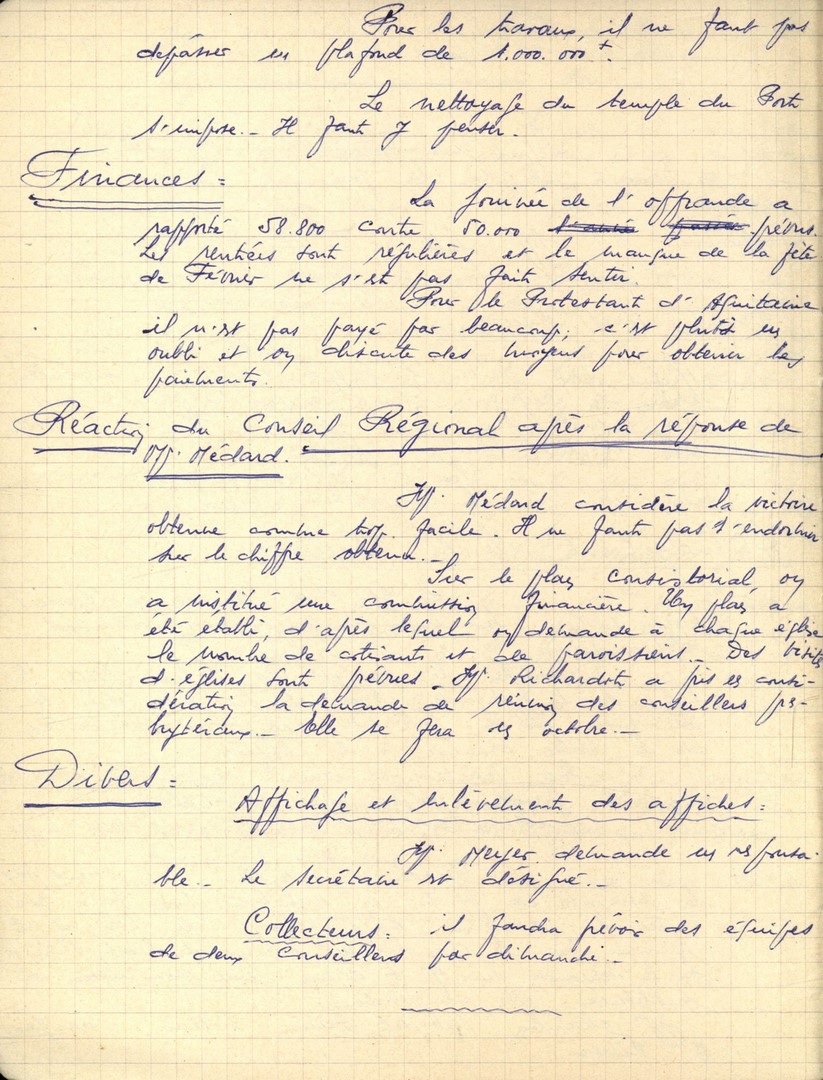 Pour les travaux, il ne faut pas
dépasser un plafond de 1.000.000 +.
Le nettoyage du temple du Port
s'impose. - Il faut y penser.
Finances =
La Journée de l'offrande a
rapporté 58.800 contre 50.000 l'année passée prévus.
Les rentrées sont régulières et le manque de la fête
de Février ne s'est pas fait sentir.
Pour le Protestant d'Aquitaine
il n'est pas payé par beaucoup; c'est plutôt un
oubli et on discute des moyens pour obtenir les
paiements.
Réaction du Conseil Régional après la réponse de
Mr. Médard.
Mr. Médard considère la victoire
obtenue comme trop facile. Il ne faut pas s'endormir
sur le chiffre obtenu. -
Sur le plan consistorial, on
a institué une commission financière. Un plan a
été établi, d'après lequel on demande à chaque église
le nombre de cotisants et de paroissiens. - Des visites
d'églises sont prévues. Mr. Richardot a pris en consi-
dération la demande de réunion des conseillers pres-
bytéraux. - Elle se fera en octobre. -
Divers =
Affichage et enlèvement des affiches =
Mr. Meyer demande un responsa-
ble. - Le secrétaire est désigné. -
Collecteurs = il faudra prévoir des équipes
de deux Conseillers par dimanche. -